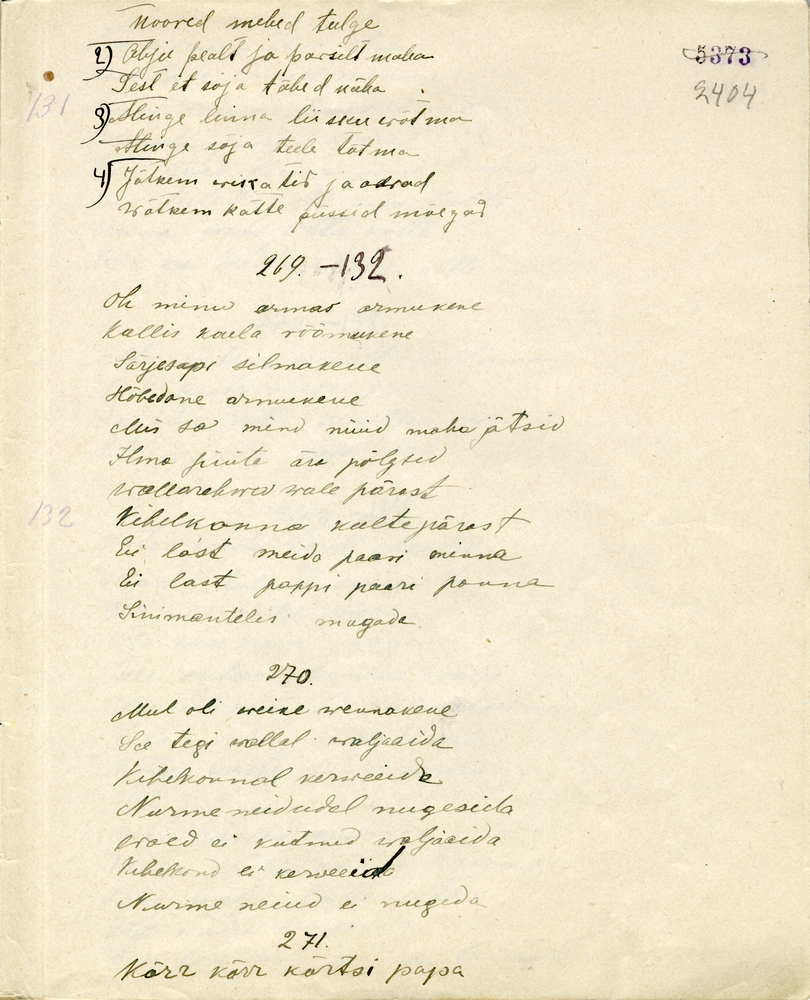 Noored mehed tulge
5373
2) Ahju pealt ja parsilt maha
2404
Sest et sõja tähed näha
131
3) Minge linna liisku wõtma
Minge sõja teele tõtma
4) Jätkem wikatid ja adrad
Wõtkem kätte püssid mõegad
269. –132.
Oh minu armas armukene
Kallis kaela rõõmukene
Särjesapi silmakene
Hõbedane armukene
Mis sa mind nüüd maha jätsid
Ilma süüta ära põlgsid
Wallarahwa wale pärast
132
Kihelkonna keelte pärast
Ei last meida paari minna
Ei last pappi paari panna
Sinimantelis magada
270.
Mul oli weike wennakene
See tegi wallal waljaaida
Kihelkonnal kerweeida
Nurme neidudel nugesida
waed ei kütned waljaaida
Kihelkond ei kerweeida
Nurme neiud ei nugeda
271.
Kõrr kõrr kõrtsi papa